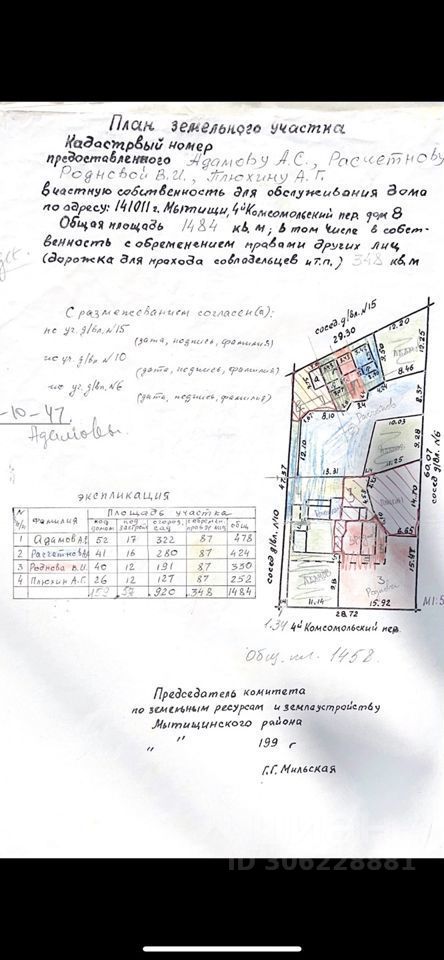 План земельного участка
Кадастрвый номер
предоставленного Адамову А.С., Расчетнову
Родновой В.И., Плюхину А.Г.
в частную собственность для обслуживания дома
по адресу: 141011 г. Мытищи, 4й Комсомольский пер. дом 8
Общая площадь 1484 кв.м; в том числе в собст-
венность с обременением правами других лиц
(дорожка для прохода совладельцев и т.п.) 348 кв.м
С размежеванием согласен(а):
по уг. д/вл. N15
(дата, подпись, фамилия)
по уг. д/вл. N10
(дата, подпись, фамилия)
по уг. д/вл. N6
(дата, подпись, фамилия)
-10-47
Адамовы
сосед. д/вл. N15
29.30
12.20
12.25
9.50
8.46
8.37
8.10
10.03
9.28
12.10
11.25
13.31
14.70
47.37
60.07
сосед д/вл. N6
сосед д/вл. N10
6.65
15.47
9.8
11.14
15.92
28.72
3.
Роднова
1.34 4й Комсомольский пер.
М1:5
Общ. пл. 1458.
экспликация
N п/п Фамилия Площадь участка
под домом под застрой огород сад обремен. прав. др. лиц общ.
1 Адамов А.С 52 17 322 87 478
2 Расчетнов 41 16 280 87 424
3 Роднова В.И. 40 12 191 87 330
4 Плюхин А.Г. 26 12 127 87 252
159 57 920 348 1484
Председатель комитета
по земельным ресурсам и землеустройству
Мытищинского района
„ “ 199 г
Г.Г. Мильская
ID 306228881